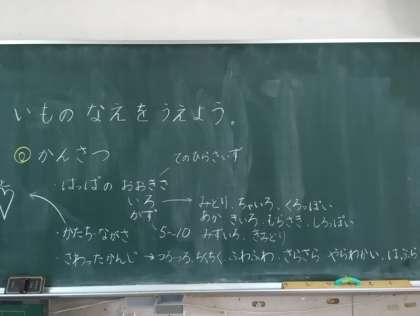 いものなえをうえよう。
◎かんさつ
てのひらさいず
・はっぱの おおきさ
いろ → みどり、ちゃいろ、くろっぽい
かず あか きいろ むらさき、しろっぽい
・かたち・ながさ 5~10 みずいろ、きみどり
・さわったかんじ → つるつる、ちくちく、ふわふわ、さらさら やらわかい、